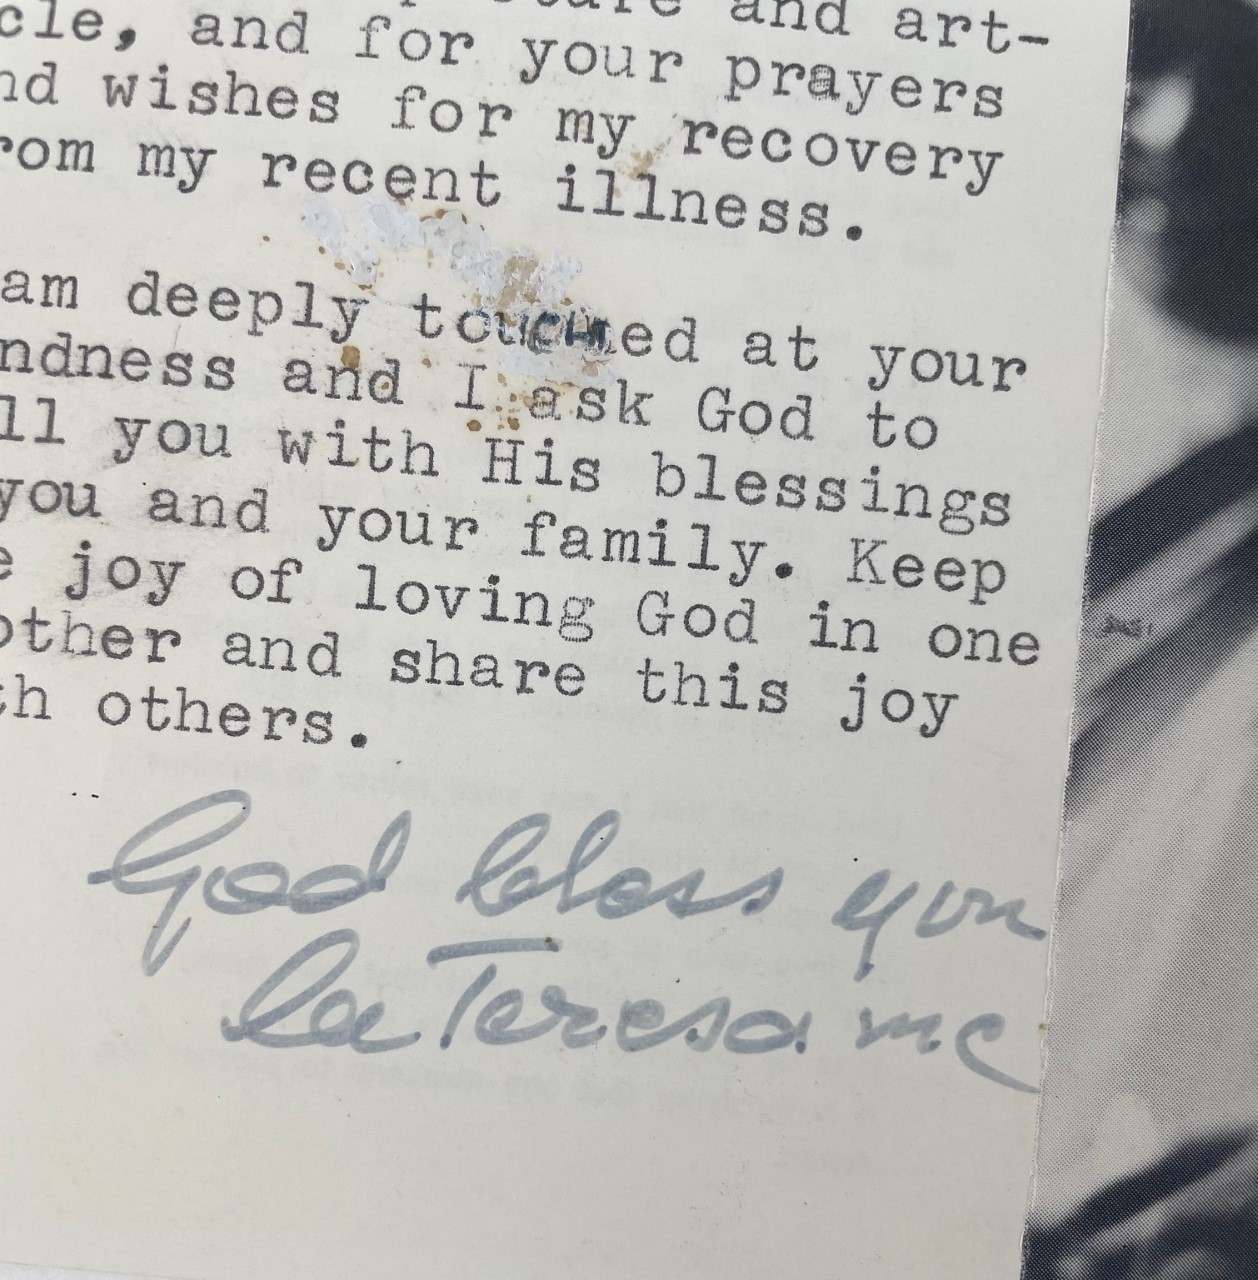 and art-
cle, and for your prayers
nd wishes for my recovery
rom my recent illness.
am deeply touched at your
ndness and I ask God to
ll you with His blessings
you and your family. Keep
e joy of loving God in one
other and share this joy
th others.
God bless you
lee Teresa mc